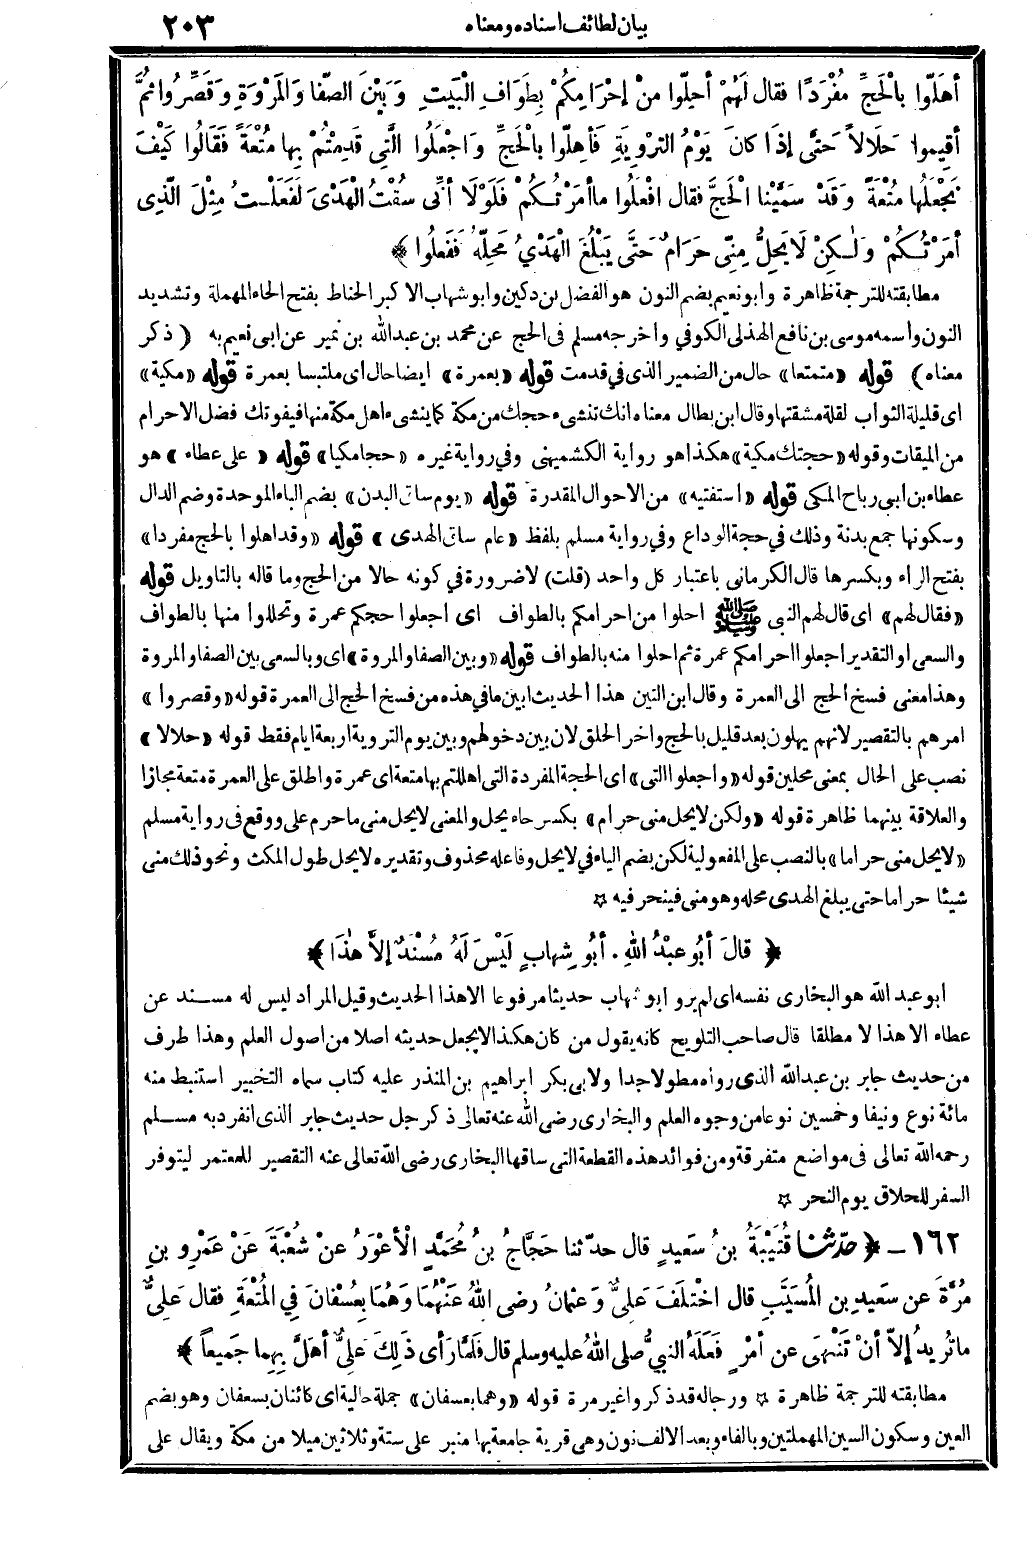 بيان لطائف اسناده ومعناه
٢٠٣
أهَلّوا بالْحَجِّ مُفْرَدًا فقال لَهُمْ أحِلّوا مِنْ إحْرَامِكُمْ بِطَوَافِ الْبَيْتِ وَبَيْنَ الصّفا وَالمَرْوَةِ وَقَصِّرُوا ثمَّ
أقِيموا حَلالاً حَتَّى إذَا كانَ يَوْمُ التّرْوِيَةِ فَأهِلّوا بالْحَجِّ وَاجْعَلُوا الَّتِي قَدِمْتُمْ بِها مُتْعَةً فَقَالُوا كَيْفَ
نَجْعَلُها مُتْعَةً وَقَدْ سَمَّيْنا الْحَجَّ فقال افْعَلُوا ما أمَرْتُكُمْ فَلَوْلَا أنِّى سُقْتُ الْهَدْىَ لَفَعَلْتُ مِثْلَ الَّذِى
أمَرْتُكُمْ وَلٰكِنْ لَا يَحِلُّ مِنِّى حَرَامٌ حَتَّى يَبْلُغَ الْهَدْيُ مَحِلّهُ فَفَعلُوا ﴾
مطابقته للترجمة ظاهرة وابو نعيم بضم النون هو الفضل بن دكين وابو شهاب الاكبر الحناط بفتح الحاء المهملة وتشديد
النون واسمه موسى بن نافع الهذلى الكوفي واخرجه مسلم فى الحج عن محمد بن عبدالله بن نمير عن ابى نعيم به ( ذكر
معناه ) قوله «متمتعا» حال من الضمير الذى في قدمت قوله «بعمرة» ايضا حال اى ملتبسا بعمرة قوله «مكية»
اى قليلة الثواب لقلة مشقتها وقال ابن بطال معناه انك تنشىء حجك من مكة كما ينشىء اهل مكة منها فيفوتك فضل الاحرام
من الميقات وقوله «حجتك مكية» هكذا هو رواية الكشميهنى وفي رواية غيره «حجا مكيا» قوله «على عطاء» هو
عطاء بن ابى رباح المكى قوله «استفتيه» من الاحوال المقدرة قوله «يوم ساق البدن» بضم الباء الموحدة وضم الدال
وسكونها جمع بدنة وذلك في حجة الوداع وفي رواية مسلم بلفظ «عام ساق الهدى» قوله «وقد اهلوا بالحج مفردا»
بفتح الراء وبكسرها قال الكرمانى باعتبار كل واحد (قلت) لا ضرورة في كونه حالا من الحج وما قاله بالتاويل قوله
«فقال لهم» اى قال لهم النبى ﷺ احلوا من احرامكم بالطواف اى اجعلوا حجكم عمرة وتحللوا منها بالطواف
والسعى او التقدير اجعلوا احرامكم عمرة ثم احلوا منه بالطواف قوله «وبين الصفا والمروة» اى وبالسعى بين الصفا والمروة
وهذا معنى فسخ الحج الى العمرة وقال ابن التين هذا الحديث ابين ما في هذه من فسخ الحج الى العمرة قوله «وقصروا»
امرهم بالتقصير لانهم يهلون بعد قليل بالحج واخر الحلق لان بين دخولهم وبين يوم التروية اربعة ايام فقط قوله «حلالا»
نصب على الحال بمعنى محلين قوله «واجعلوا التى» اى الحجة المفردة التى اهللتم بها متعة اى عمرة واطلق على العمرة متعة مجازا
والعلاقة بينهما ظاهرة قوله «ولكن لا يحل منى حرام» بكسر حاء يحل والمعنى لا يحل منى ما حرم على ووقع فى رواية مسلم
«لا يحل منى حراما» بالنصب على المفعولية لكن بضم الياء في لا يحل وفاعله محذوف وتقديره لا يحل طول المكث ونحو ذلك منى
شيئا حراما حتى يبلغ الهدى محله وهو منى فينحر فيه ☆
﴿ قالَ أبُو عَبْدُ اللهِ . أبُو شِهابٍ لَيْسَ لَهُ مُسْنَدٌ إلاَّ هٰذَا ﴾
ابو عبد الله هو البخارى نفسه اى لم يرو ابو شهاب حديثا مرفوعا الا هذا الحديث وقيل المراد ليس له مسند عن
عطاء الا هذا لا مطلقا قال صاحب التلويح كانه يقول من كان هكذا لا يجعل حديثه اصلا من اصول العلم وهذا طرف
من حديث جابر بن عبدالله الذى رواه مطولا جدا ولابى بكر ابراهيم بن المنذر عليه كتاب سماه التخيير استنبط منه
مائة نوع ونيفا وخمسين نوعا من وجوه العلم والبخارى رضى الله عنه تعالى ذكر جل حديث جابر الذى انفرد به مسلم
رحمه الله تعالى فى مواضع متفرقة ومن فوائد هذه القطعة التى ساقها البخارى رضى الله تعالى عنه التقصير للمعتمر ليتوفر
السفر للحلاق يوم النحر ☆
١٦٢ - ﴿ حدّثنا قُتَيْبَةُ بنُ سَعِيدٍ قال حدّثنا حَجَّاجُ بنُ مُحَمَّدٍ الْأعْوَرُ عنْ شُعْبَةَ عَنْ عَمْرِو بنِ
مُرَّةَ عن سَعِيدِ بنِ المُسَيَّبِ قال اخْتَلَفَ عَلِيٌّ وَعثمانُ رضى اللهُ عَنْهُما وَهُما بِعُسْفانَ فِي المُتْعَةِ فقال عَلِيٌّ
ما تُرِيدُ إلاّ أنْ تَنْهَى عن أمْرٍ فَعَلَهُ النبيُّ صلى اللهُ عليه وسلم قال فَلَمَّا رَأى ذَلِكَ عَلِيٌّ أهَلَّ بِهِما جَمِيعاً ﴾
مطابقته للترجمة ظاهرة ☆ ورجاله قد ذكروا غير مرة قوله «وهما بعسفان» جملة حالية اى كائنان بعسفان وهو بضم
العين وسكون السين المهملتين وبالفاء وبعد الالف نون وهى قرية جامعة بها منبر على ستة وثلاثين ميلا من مكة ويقال على